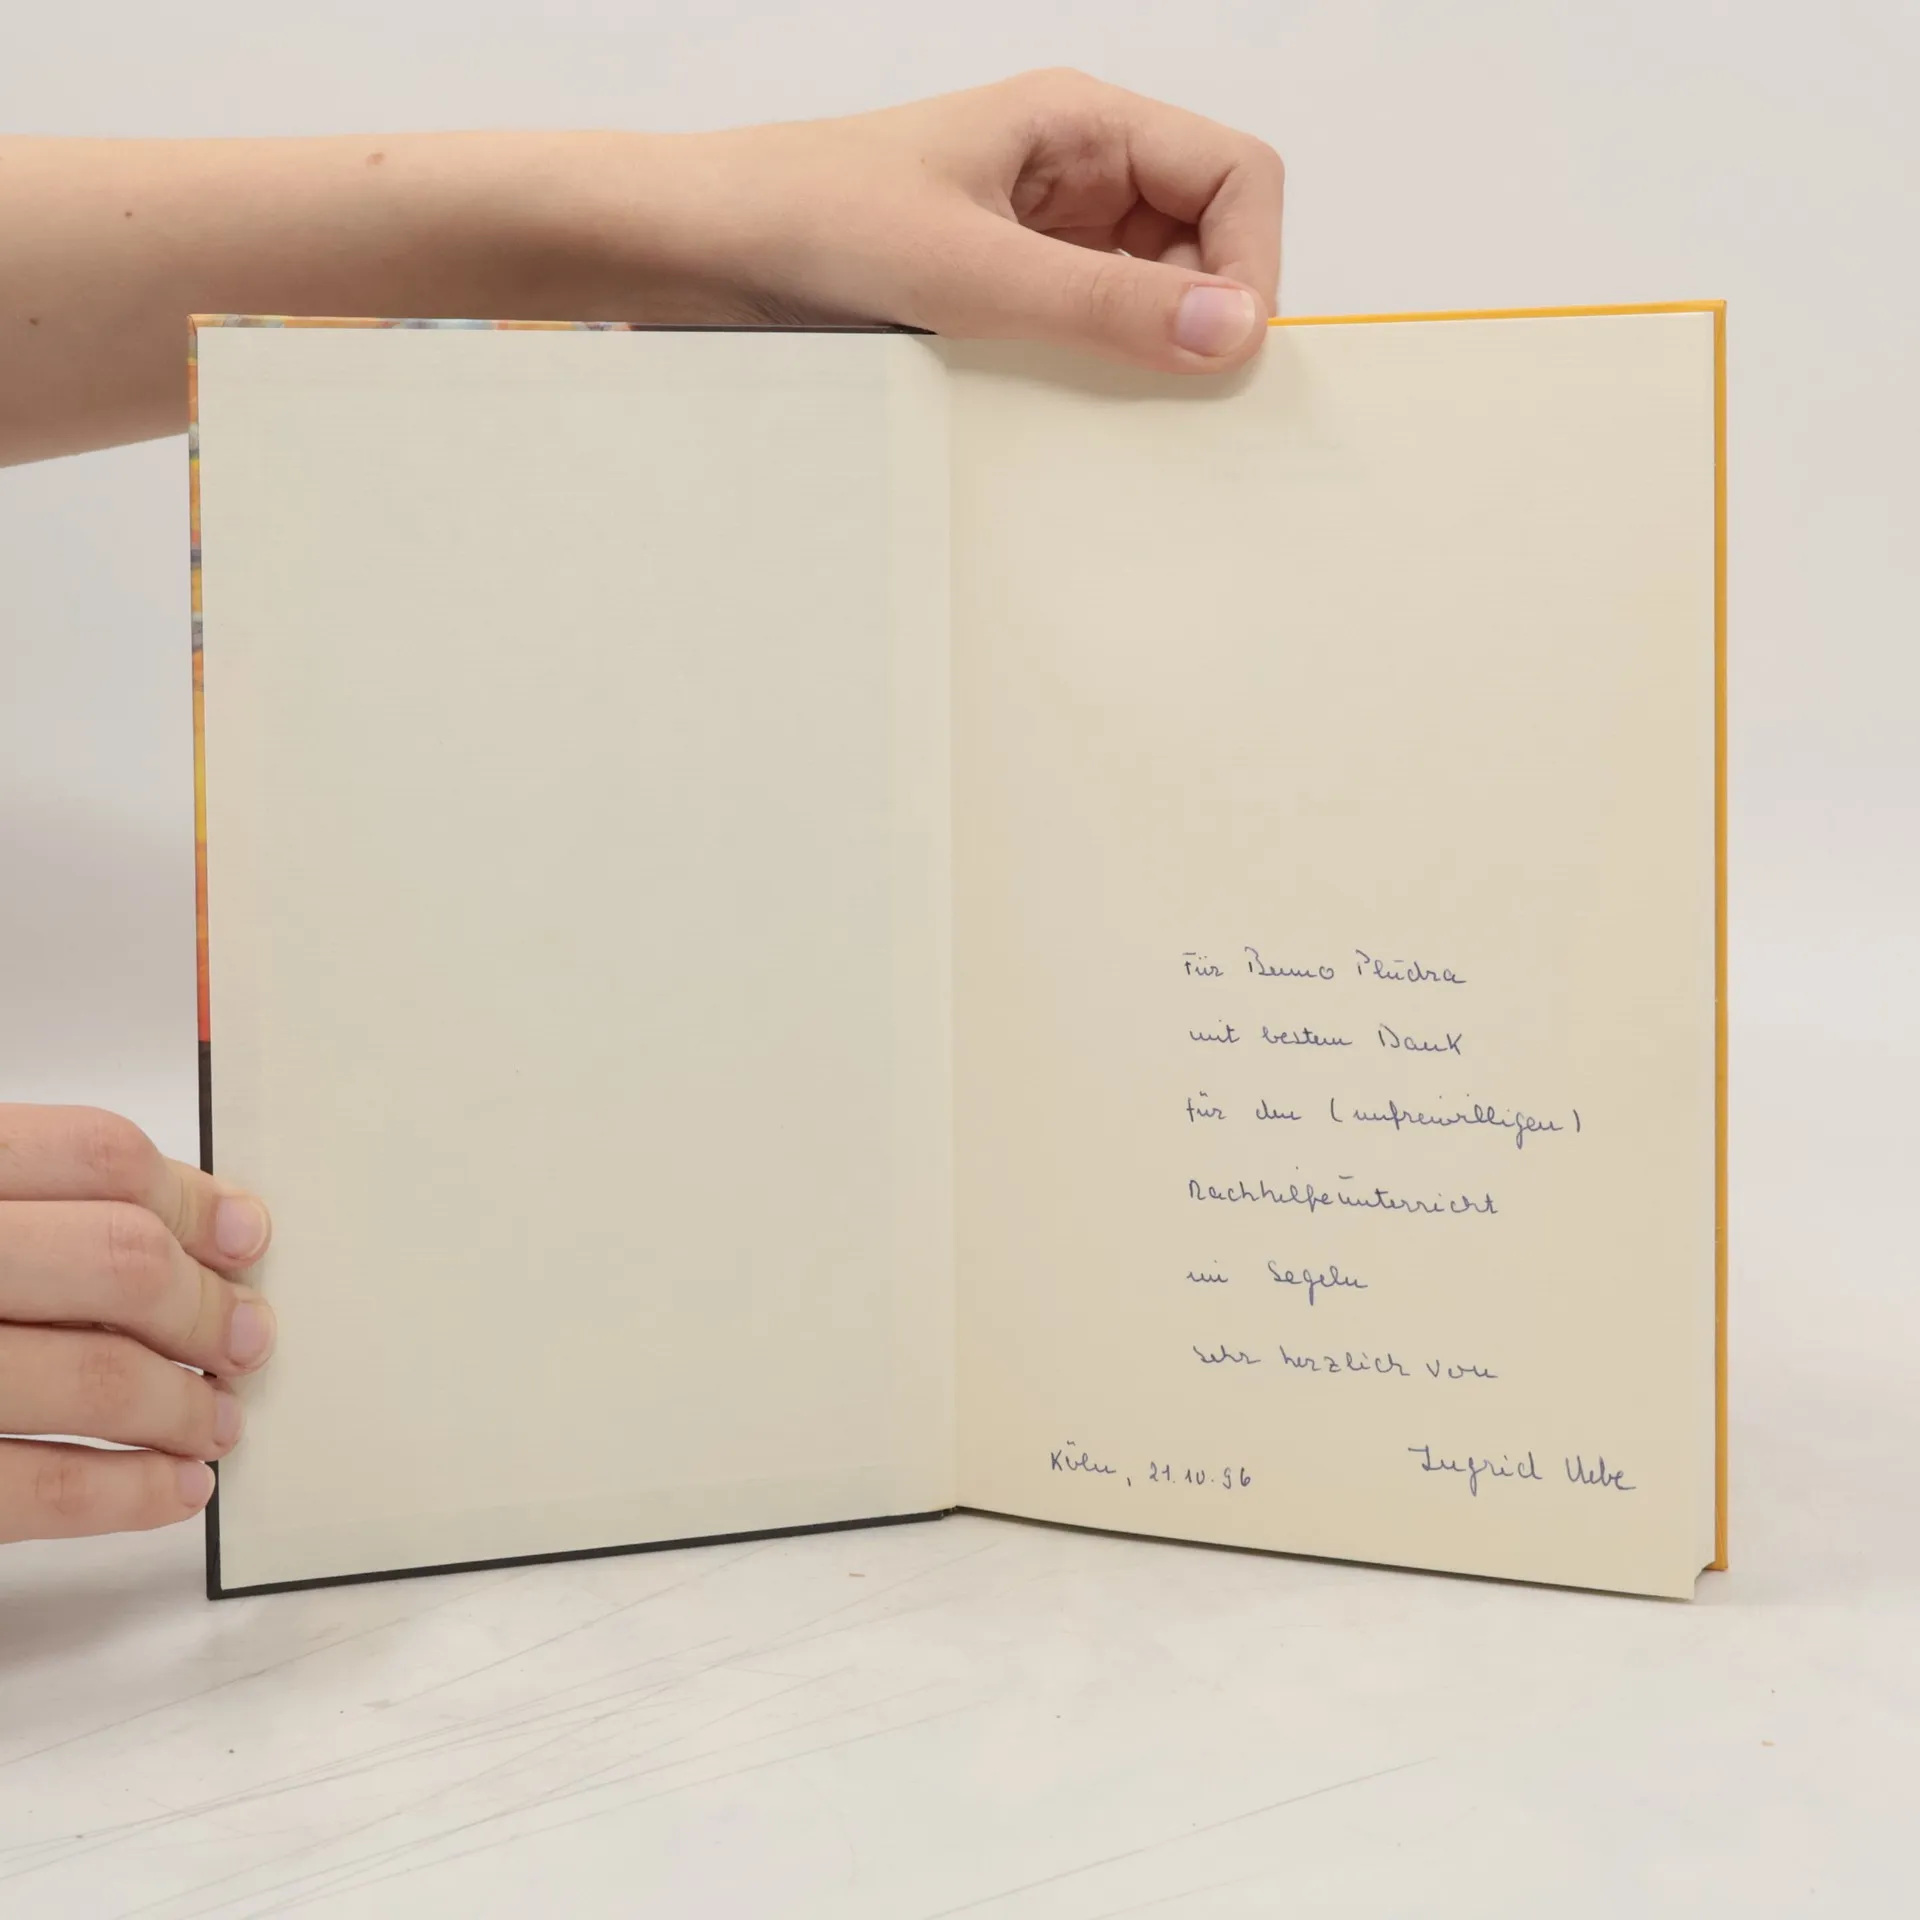 Für Benno Pludra
mit bestem Dank
für den (unfreiwilligen)
Nachhilfeunterricht
im Segeln
sehr herzlich von
Ingrid Uebe
Köln, 21.10.96